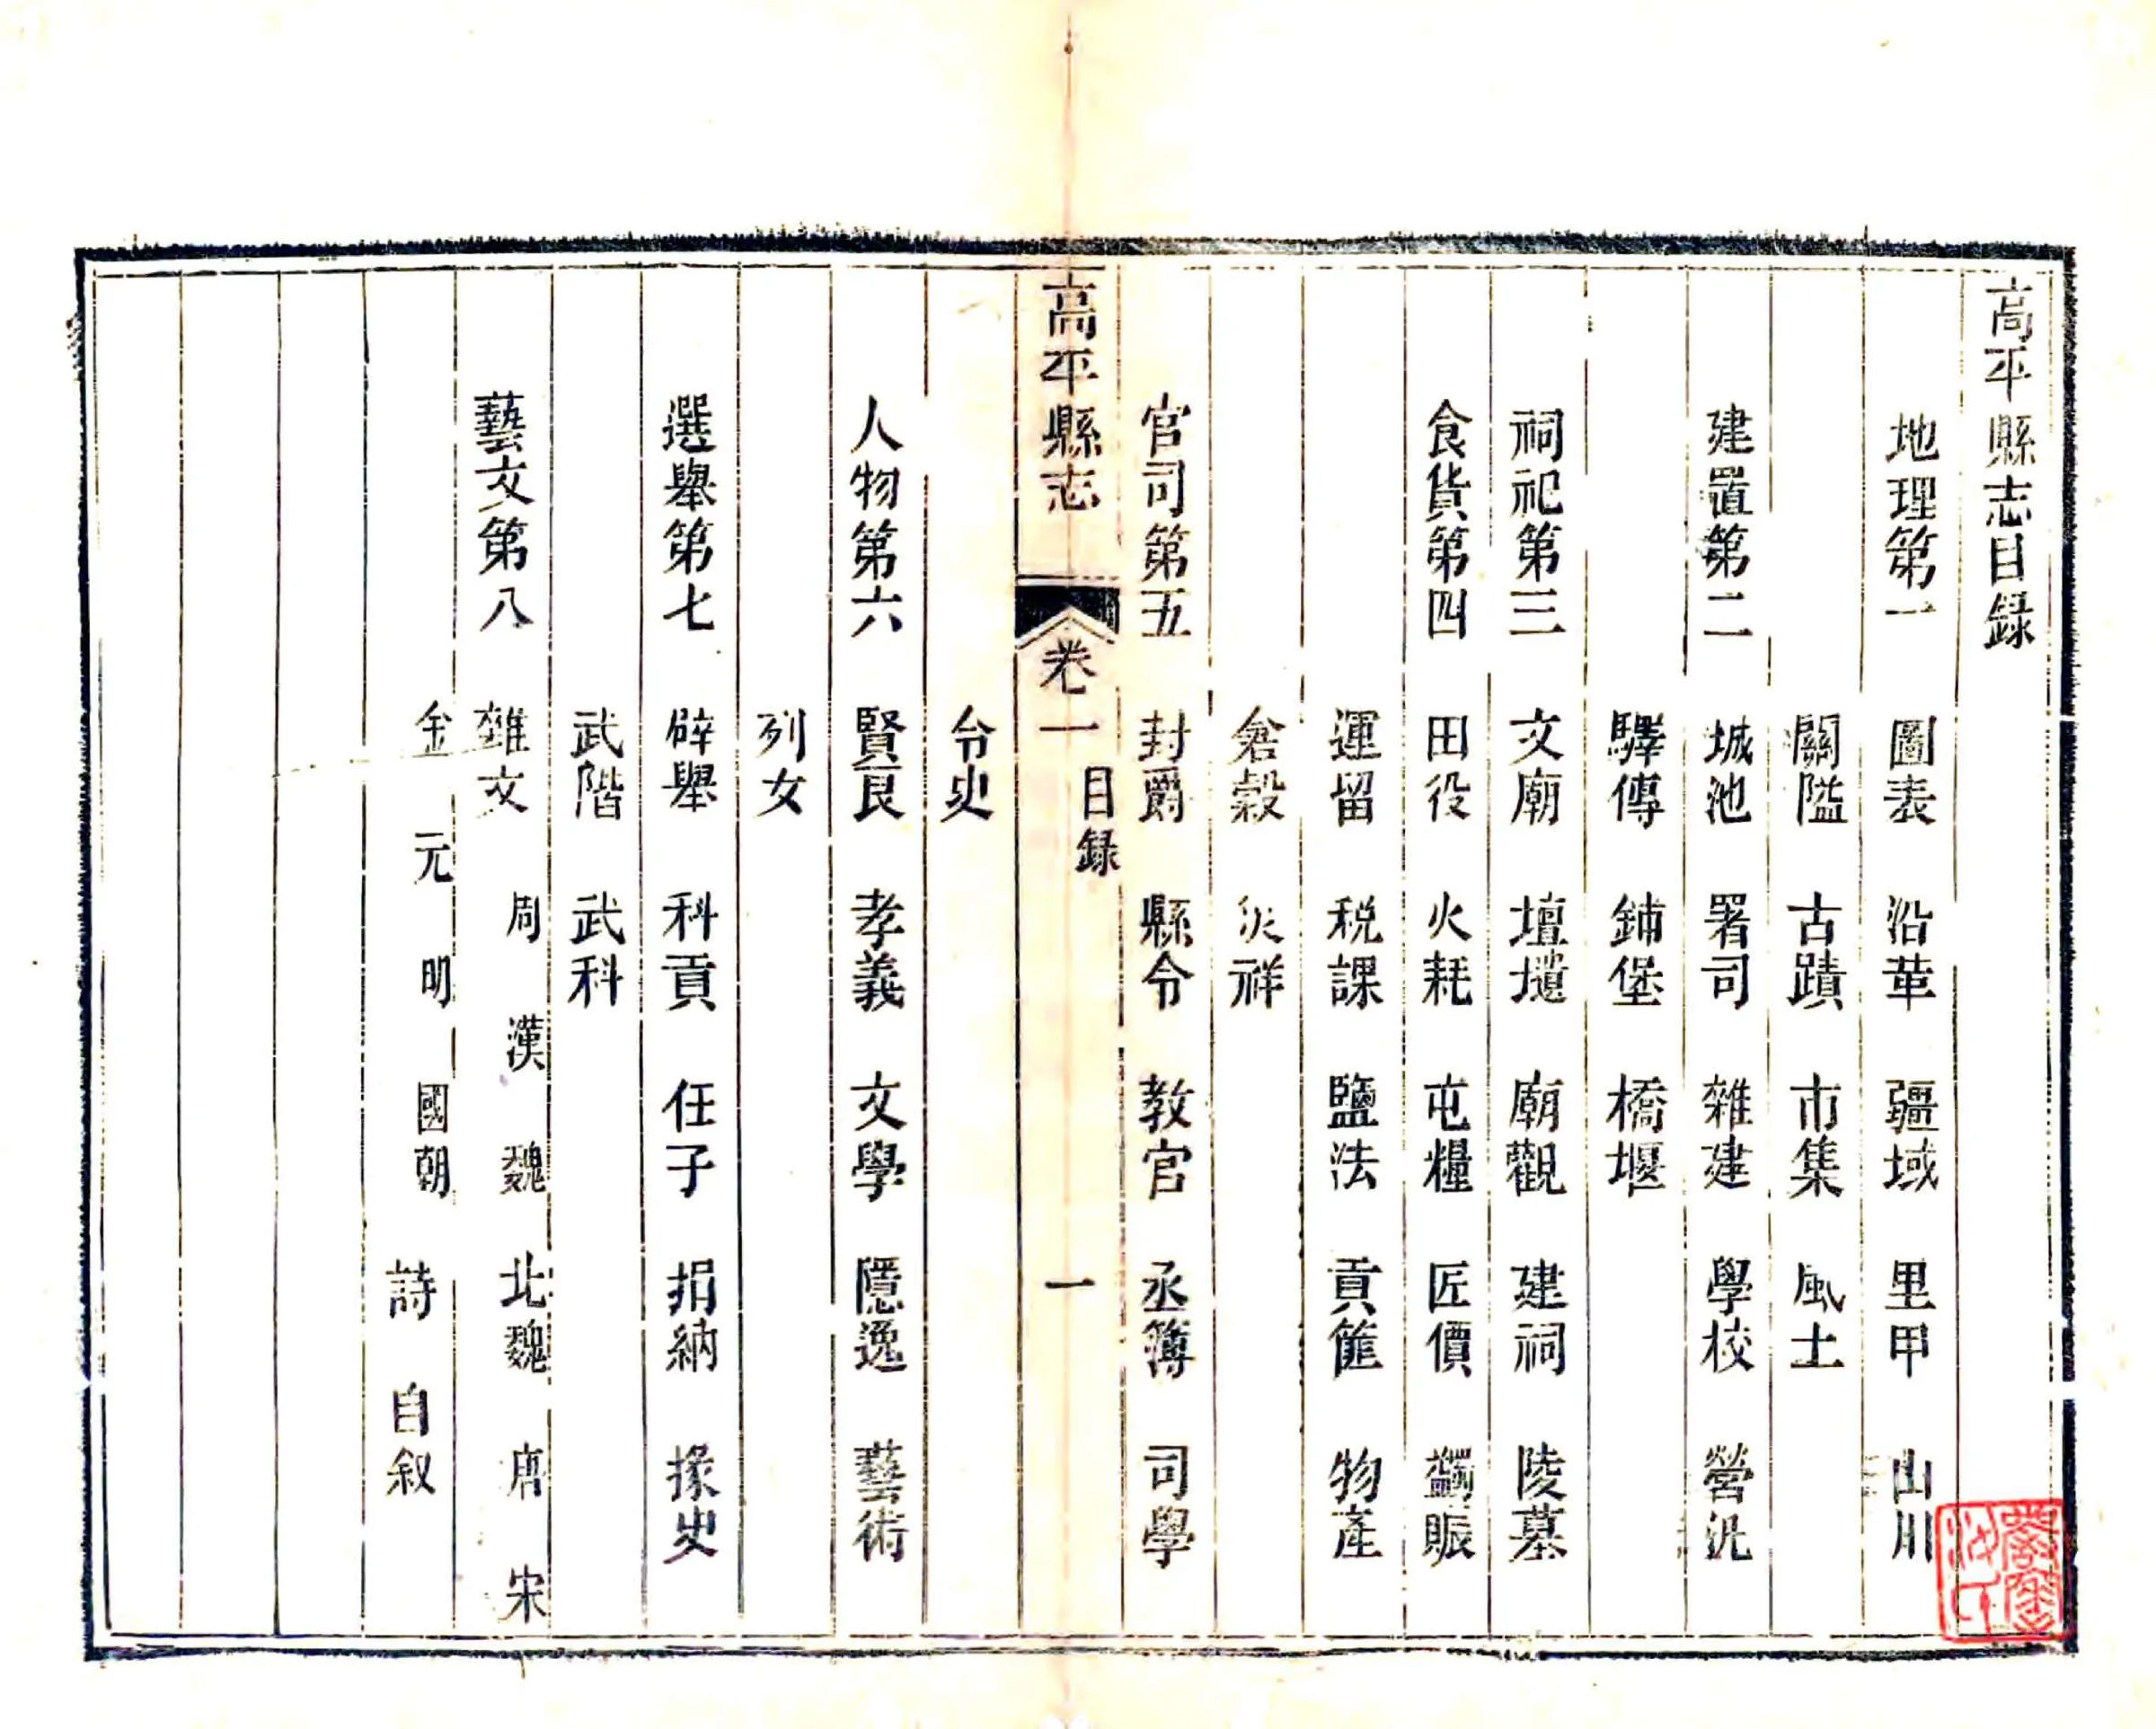 高平縣志目錄
地理第一 圖表 沿革 疆域 里甲 山川
關隘 古蹟 市集 風土
建置第二 城池 署司 雜建 學校 營汛
驛傳 鋪堡 橋堰
祠祀第三 文廟 壇壝 廟觀 建祠 陵墓
食貨第四 田役 火耗 屯糧 匠價 蠲賑
運留 稅課 鹽法 貢篚 物產
倉穀 災祥
官司第五 封爵 縣令 教官 丞簿 司學
高平縣志 卷一 目錄 一
令史
人物第六 賢良 孝義 文學 隱逸 藝術
列女
選舉第七 辟舉 科貢 任子 捐納 掾史
武階 武科
藝文第八 雜文 周 漢 魏 北魏 唐 宋
金 元 明 國朝 詩 自叙